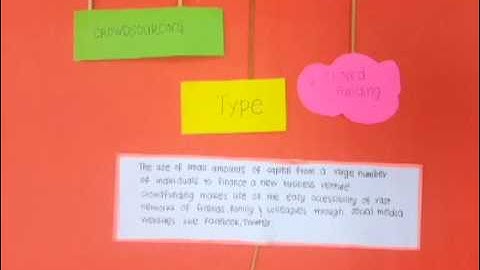 CROWDSOURCING
Type
funding
The use of small amounts of capital from a large number
of individuals to finance a new business venture
crowdfunding makes use of the easy accessibility of vast
networks of friends, family & colleagues through social media
websites like Facebook, Twitter